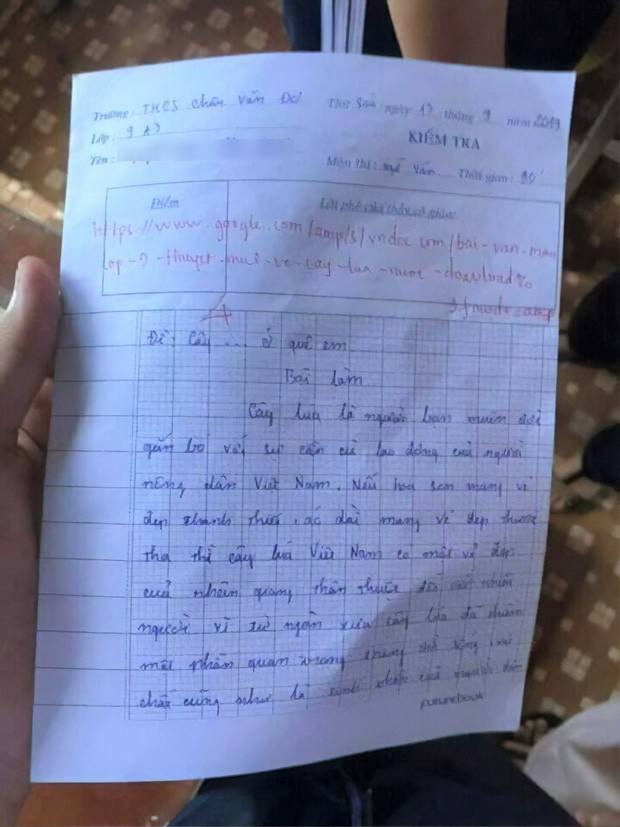 Trường: THCS Chân Văn Đới Thứ Sáu ngày 13 tháng 9 năm 2019
Lớp: 9A7 KIỂM TRA
Tên: Môn thi: Ngữ Văn Thời gian: 90'
Điểm Lời phê của thầy cô giáo
https://www.google.com/amp/s/vndoc.com/bai-van-mau
lop-9-thuyet-minh-ve-cay-lua-nuoc-download
mode=amp
Đề: Cây ... ở quê em
Bài làm
Cây lúa là người bạn muôn đời
gắn bó với sự cần cù lao động của người
nông dân Việt Nam. Nếu hoa sen mang vẻ
đẹp thanh thuần, áo dài mang vẻ đẹp thướt
tha thì cây lúa Việt Nam có một vẻ đẹp
thân thuộc
người vì từ ngàn xưa cây lúa đã
một phần quan trọng trong
chất cũng như là của người
futurebook